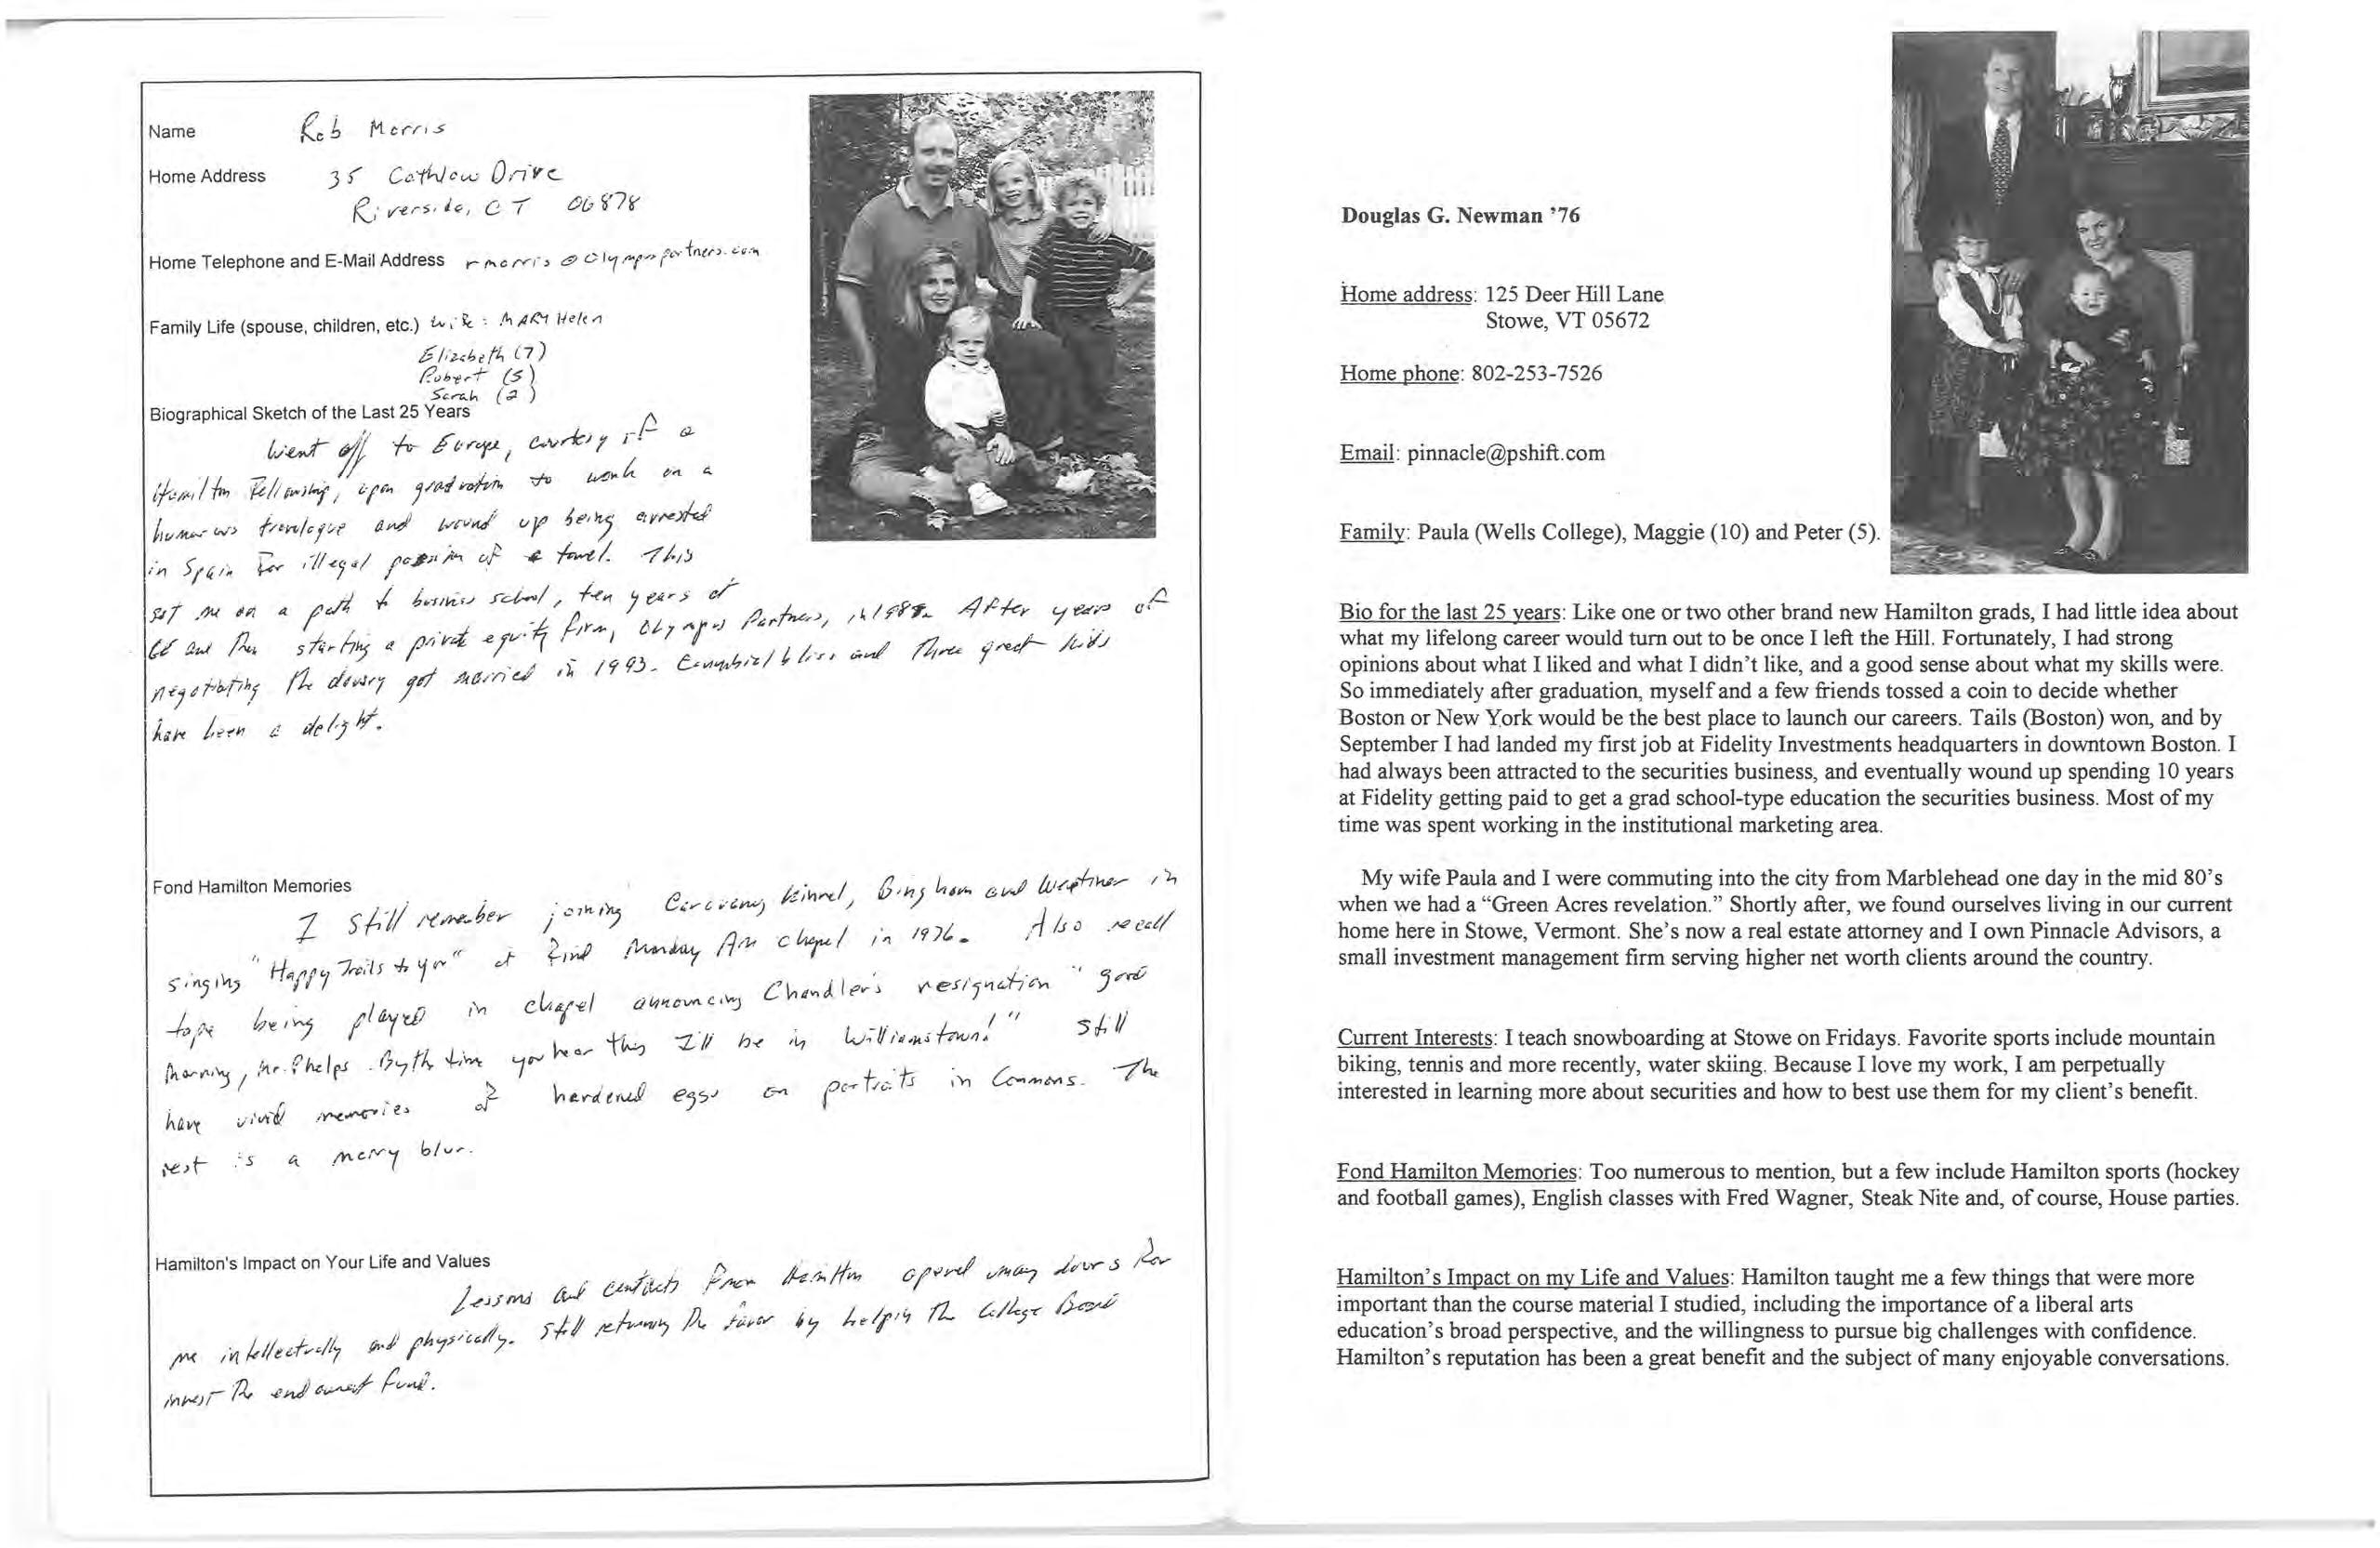 Name Rob Morris
Home Address 35 Cathlow Drive
Riverside, CT 06878
Home Telephone and E-Mail Address rmorris@olympuspartners.com
Family Life (spouse, children, etc.) Wife: MARY Helen
Elizabeth (7)
Robert (5)
Sarah (2)
Biographical Sketch of the Last 25 Years
Went off to Europe, courtesy of a
Hamilton Fellowship, upon graduation to work on a
humorous travelogue and wound up being arrested
in Spain for illegal possession of a towel. This
set me on a path to business school, ten years at
GE and then starting a private equity firm, Olympus Partners, in After years of
negotiating the dowry got married in 1993. Connubial bliss and three great kids
have been a delight.
Fond Hamilton Memories
I still remember joining Kinnel, Bingham and in
singing "Happy Trails to you" at final Monday AM chapel in 1976. Also recall
tape being played in chapel announcing Chandler's resignation "good
morning, Mr. Phelps. By the time you hear this I'll be in Williamstown!" Still
have vivid memories of hardened eggs on portraits in Commons. The
rest is a merry blur.
Hamilton's Impact on Your Life and Values
Lessons and contacts from Hamilton opened many doors for
me intellectually and physically. Still returning the favor by helping the College Board
invest the endowment fund.
Douglas G. Newman '76
Home address: 125 Deer Hill Lane
Stowe, VT 05672
Home phone: 802-253-7526
Email: pinnacle@pshift.com
Family: Paula (Wells College), Maggie (10) and Peter (5).
Bio for the last 25 years: Like one or two other brand new Hamilton grads, I had little idea about
what my lifelong career would turn out to be once I left the Hill. Fortunately, I had strong
opinions about what I liked and what I didn't like, and a good sense about what my skills were.
So immediately after graduation, myself and a few friends tossed a coin to decide whether
Boston or New York would be the best place to launch our careers. Tails (Boston) won, and by
September I had landed my first job at Fidelity Investments headquarters in downtown Boston. I
had always been attracted to the securities business, and eventually wound up spending 10 years
at Fidelity getting paid to get a grad school-type education the securities business. Most of my
time was spent working in the institutional marketing area.
My wife Paula and I were commuting into the city from Marblehead one day in the mid 80's
when we had a "Green Acres revelation." Shortly after, we found ourselves living in our current
home here in Stowe, Vermont. She's now a real estate attorney and I own Pinnacle Advisors, a
small investment management firm serving higher net worth clients around the country.
Current Interests: I teach snowboarding at Stowe on Fridays. Favorite sports include mountain
biking, tennis and more recently, water skiing. Because I love my work, I am perpetually
interested in learning more about securities and how to best use them for my client's benefit.
Fond Hamilton Memories: Too numerous to mention, but a few include Hamilton sports (hockey
and football games), English classes with Fred Wagner, Steak Nite and, of course, House parties.
Hamilton's Impact on my Life and Values: Hamilton taught me a few things that were more
important than the course material I studied, including the importance of a liberal arts
education's broad perspective, and the willingness to pursue big challenges with confidence.
Hamilton's reputation has been a great benefit and the subject of many enjoyable conversations.